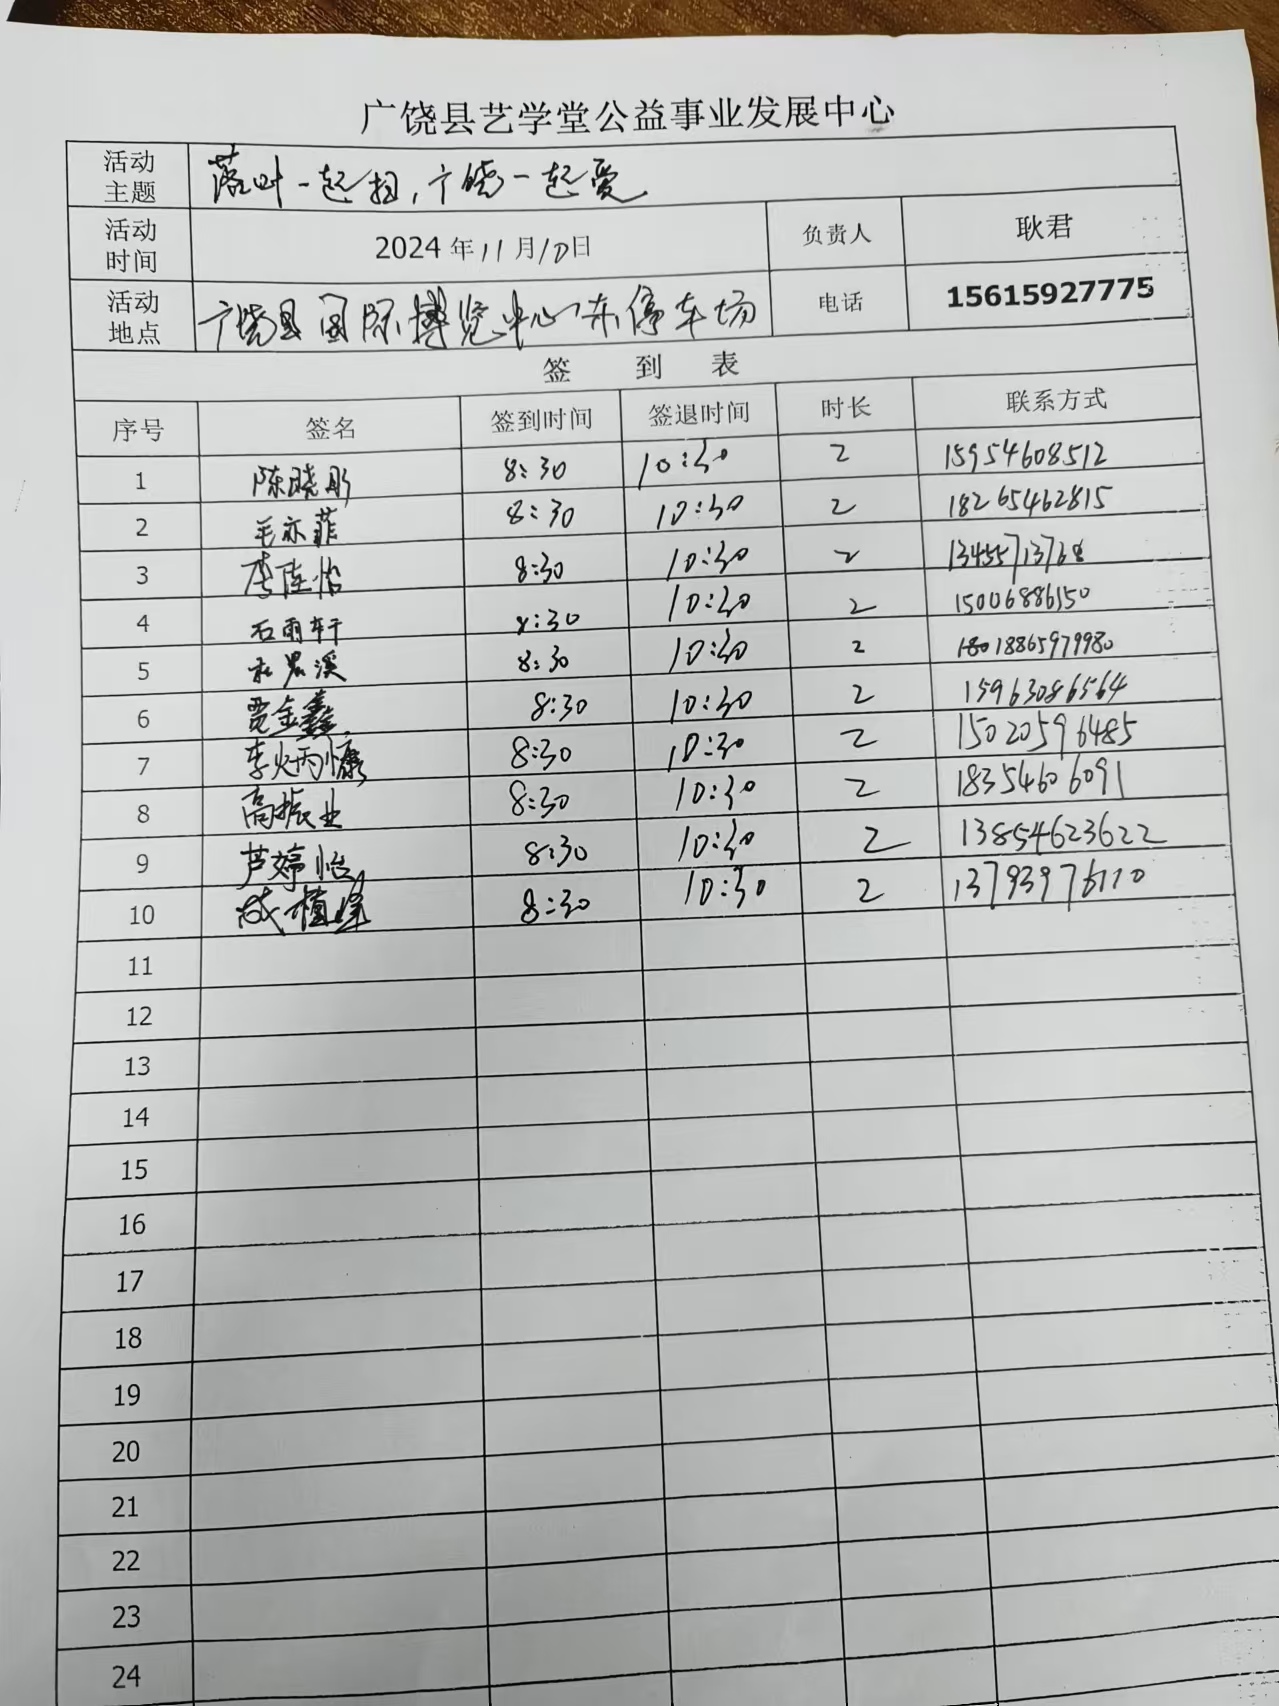 广饶县艺学堂公益事业发展中心
活动主题 落叶一起扫,广饶一起爱
活动时间 2024年11月10日 负责人 耿君
活动地点 广饶县国际博览中心东停车场 电话 15615927775
签到表
序号 签名 签到时间 签退时间 时长 联系方式
1 陈晓彤 8:30 10:30 2 15954608512
2 毛亦菲 8:30 10:30 2 18265462815
3 李佳怡 8:30 10:30 2
4 石雨轩 8:30 10:30 2 15006886150
5 8:30 10:30 2 18865979980
6 贾金鑫 8:30 10:30 2 15963086564
7 李炳慷 8:30 10:30 2 15020596485
8 高振业 8:30 10:30 2 18354606091
9 芦婷怡 8:30 10:30 2 13854623622
10 8:30 10:30 2 13793976110
11
12
13
14
15
16
17
18
19
20
21
22
23
24